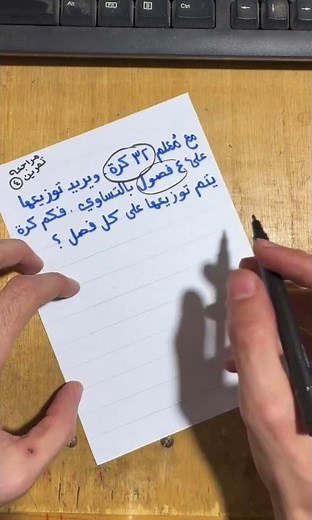 مراجعة
تمرين ٤
مع مُعلم ٣٢ كرة، ويريد توزيعها
على ٤ فصول بالتساوي. فكم كرة
يتم توزيعها على كل فصل ؟